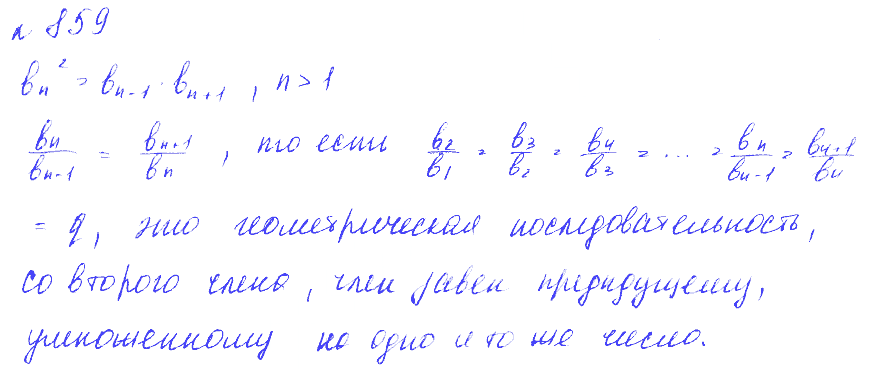 № 859
bₙ² = bₙ₋₁ · bₙ₊₁ , n > 1
bₙ/bₙ₋₁ = bₙ₊₁/bₙ , то есть b₂/b₁ = b₃/b₂ = b₄/b₃ = ... = bₙ/bₙ₋₁ = bₙ₊₁/bₙ
= q, это геометрическая последовательность,
со второго члена, член равен предидущему,
умноженному на одно и то же число.